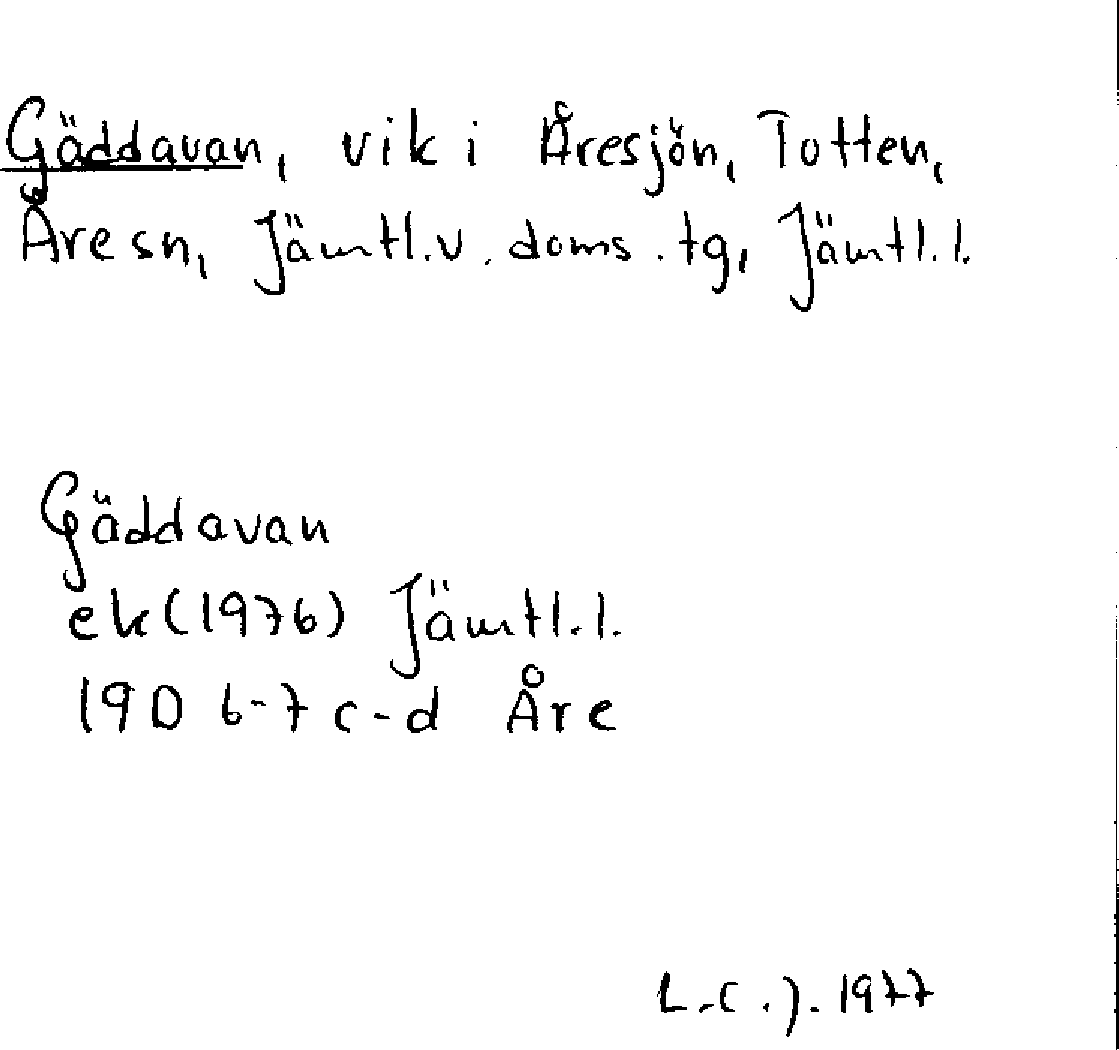 Gäddavan, vik i Åresjön, Totten,
Åre sn, Jämtl.v. doms. tg, Jämtl.l.
Gäddavan
ek (1976) Jämtl.l.
19D 6-7 c-d Åre
L.C.J. 1977